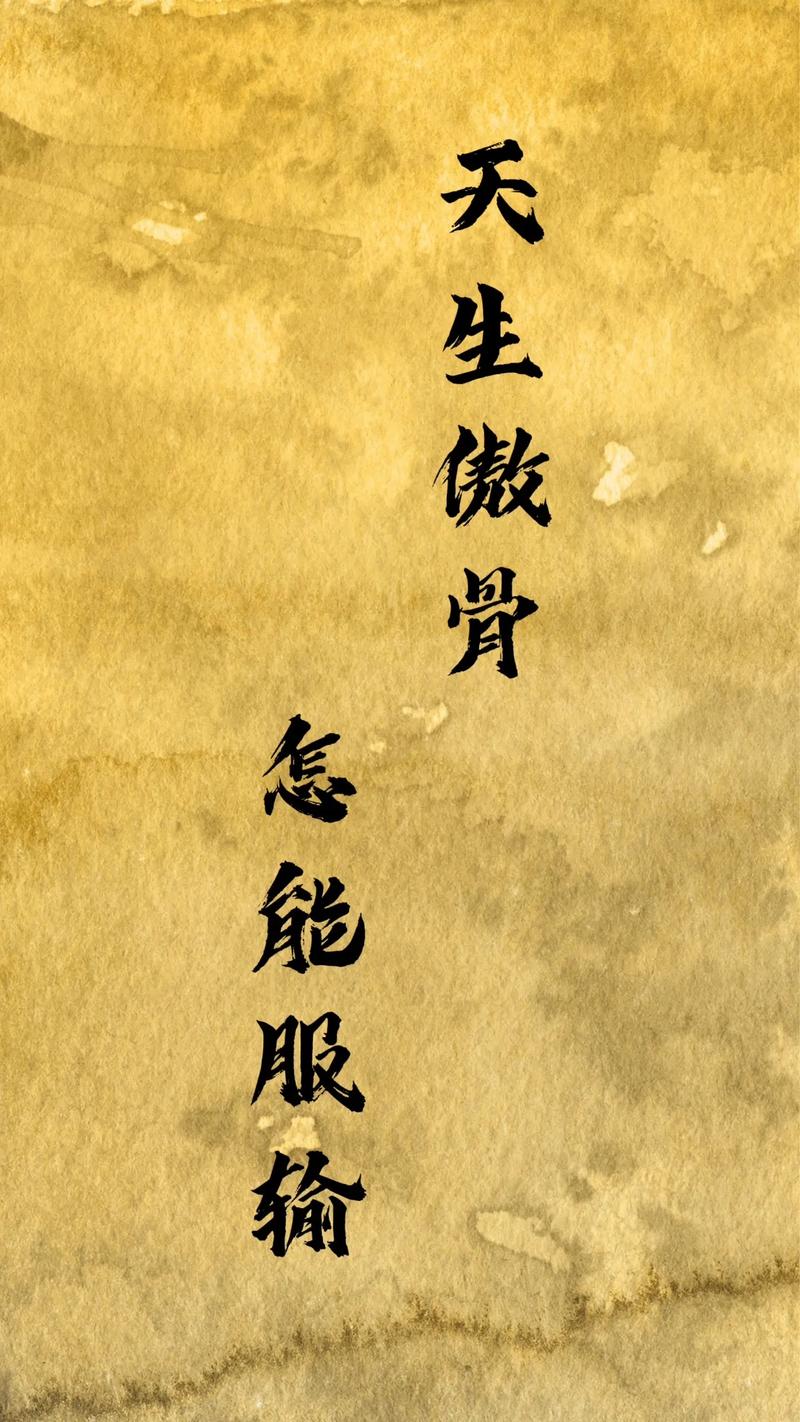 天生傲骨
怎能服输